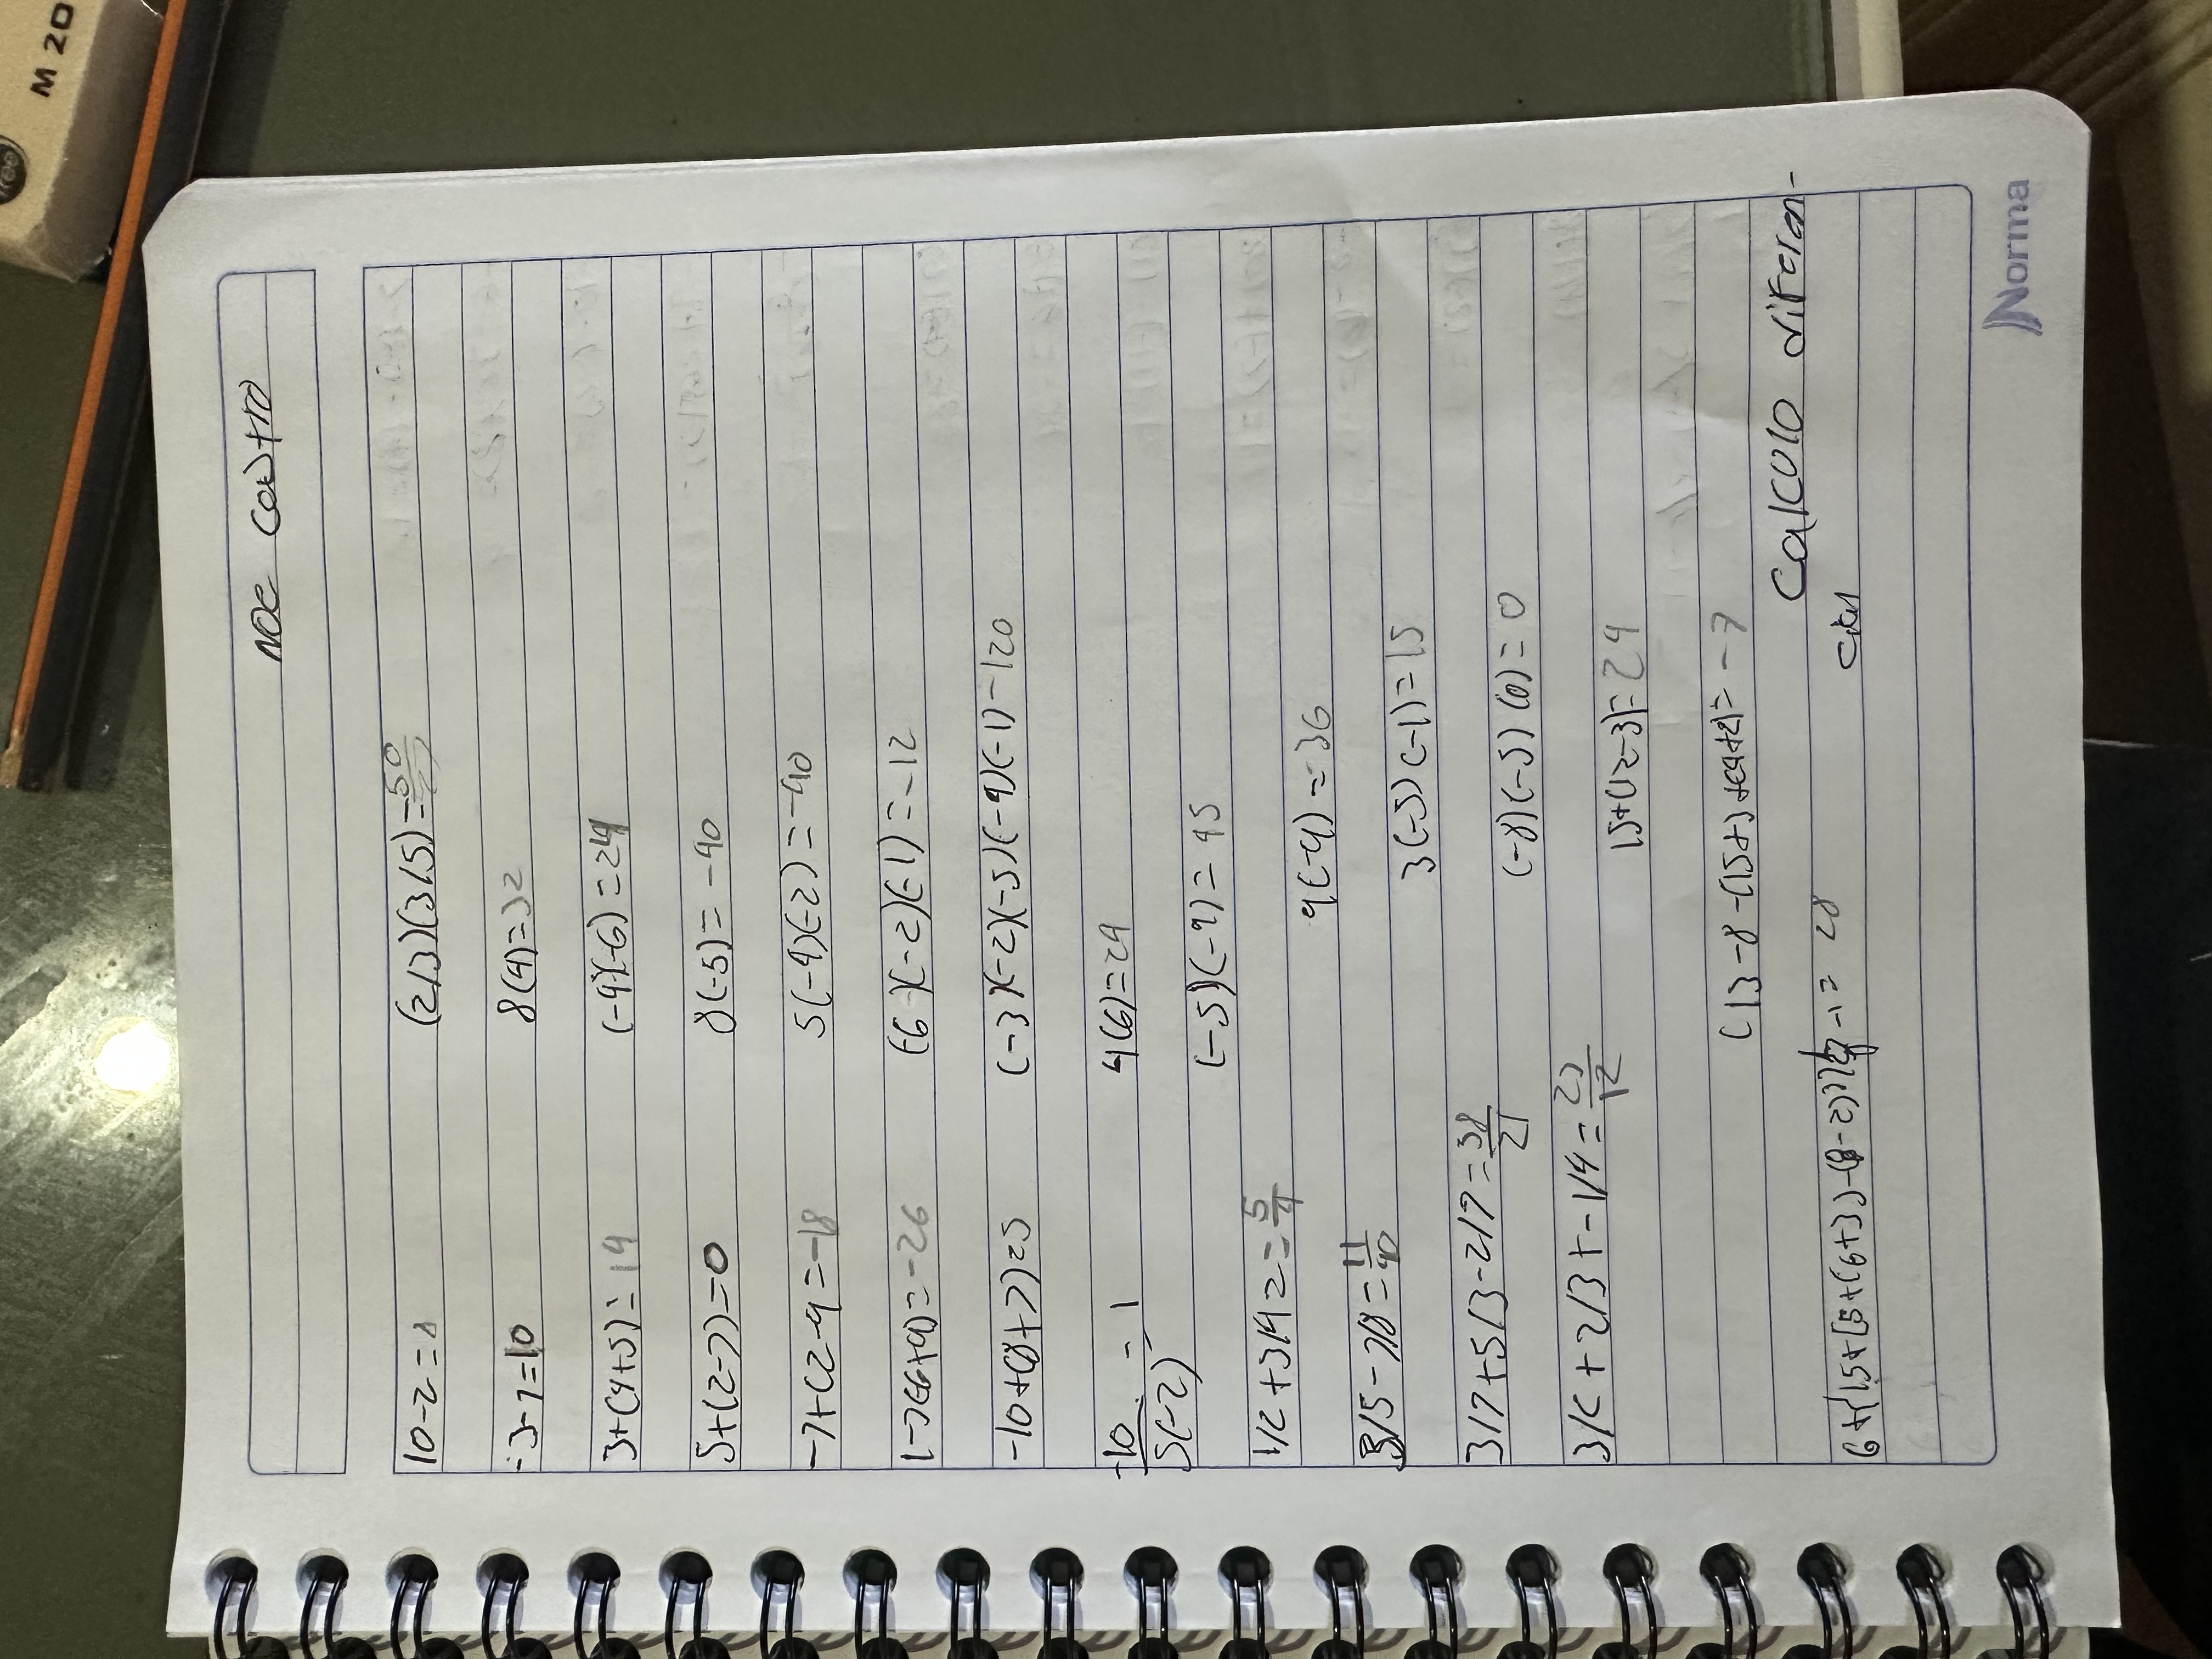 M 20
free
noe castro
10-2=8
(2/3)(3/5)=
-3-7=10
8(4)=32
3+(4+5)=14
(-4)(-6)=24
5+(2-7)=0
8(-5)=-40
-7+(2-9=-18
5(-4)(-2)=-40
(-7(6+9)=-26
(-6)(-2)(-1)=-12
-10+(8+7)=5
(-3)(-2)(-5)(-4)(-1)-120
-10
5(-2)
-1
4(6)=24
(-5)(-9)=45
1/2+3/4 2=5/4
9(-4)=-36
3/5-7/8=11/40
3(-5)(-1)=15
3/7+5/3-2/7=38/21
(-8)(-5)(0)=0
3/2+2/3+-1/4=23/12
15+(12-3)=24
(13-8-(15+3+(4+2)=-7
Calculo diferen-
cial
6+{15+[5+(6+3)-(8-2)]}-1=28
Norma